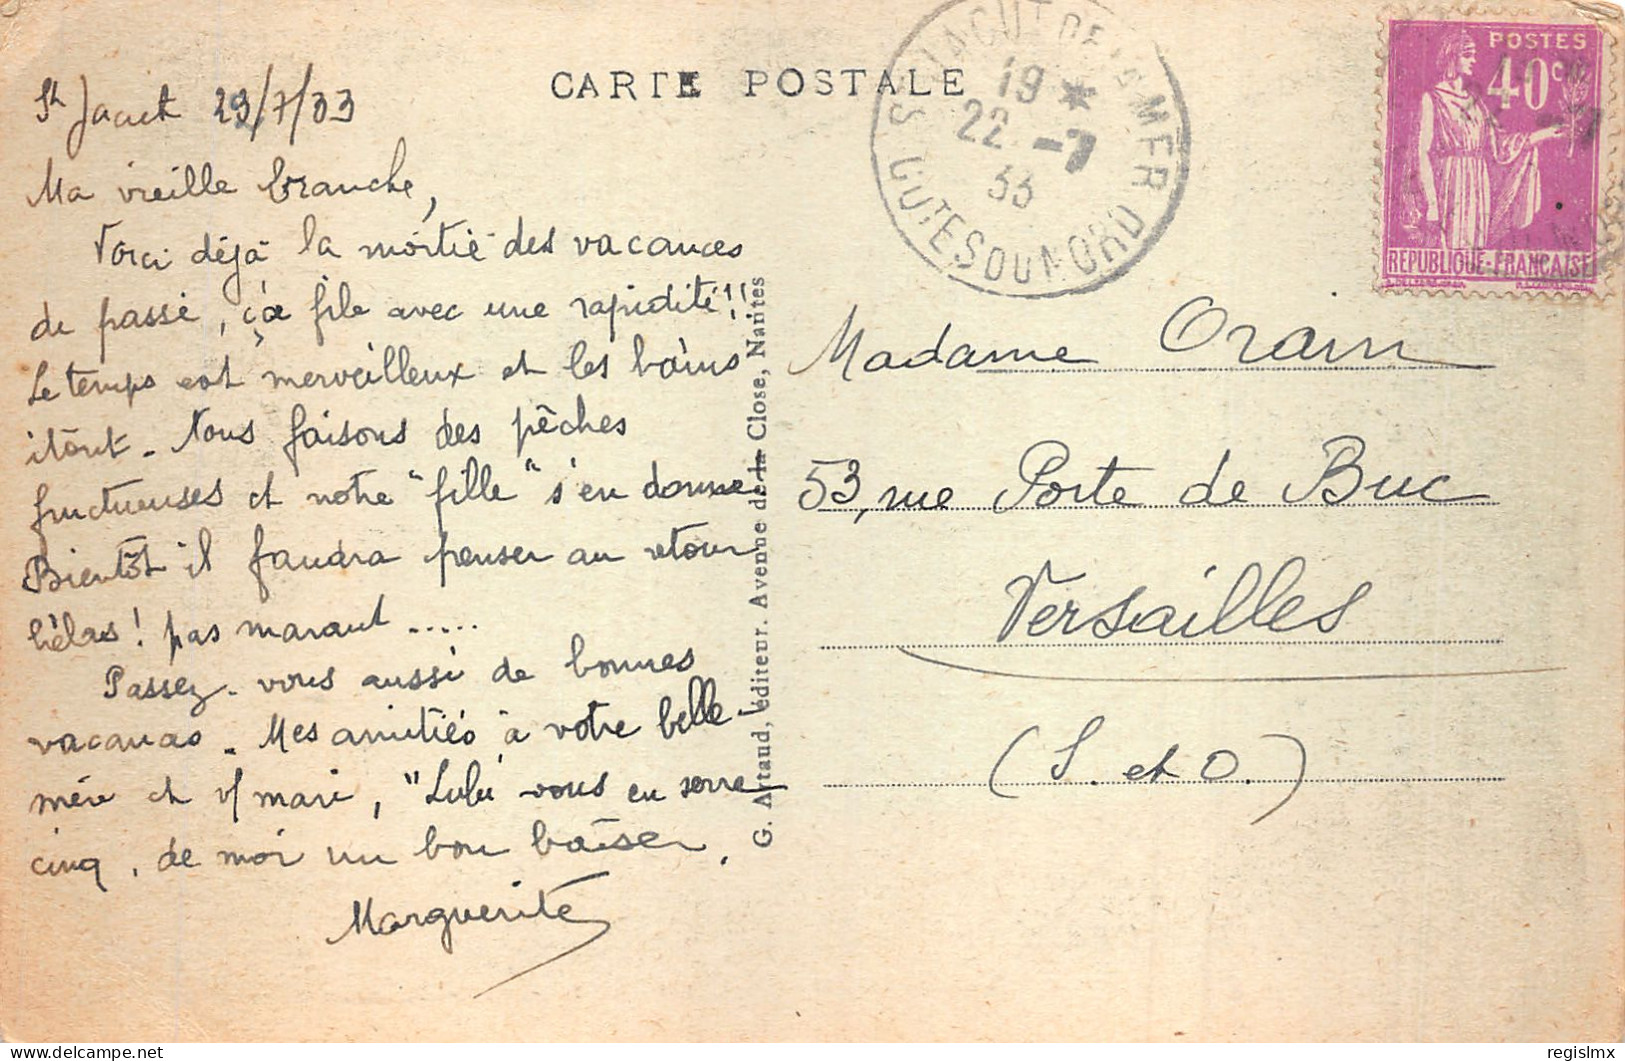 CARTE POSTALE
St Jacut 23/7/33
Ma vieille branche,
Voici déjà la moitié des vacances
de passé, ça file avec une rapidité!!
Le temps est merveilleux et les bains
itout. Nous faisons des pêches
fructueuses et notre "fille" s'en donne
Bientôt il faudra penser au retour
hélas! pas marant .....
Passez-vous aussi de bonnes
vacances. Mes amitiés à votre belle-
mère et v/ mari, "Lulu" vous en serre
cinq, de moi un bon baiser.
Marguerite
G. Artaud, éditeur. Avenue de la Close, Nantes
ST JACUT DE LA MER
19 *
22 -7
33
CÔTES DU NORD
POSTES
40c
22 -7
REPUBLIQUE-FRANÇAISE
Madame Orain
53, rue Porte de Buc
Versailles
(S. et O.)
regislmx